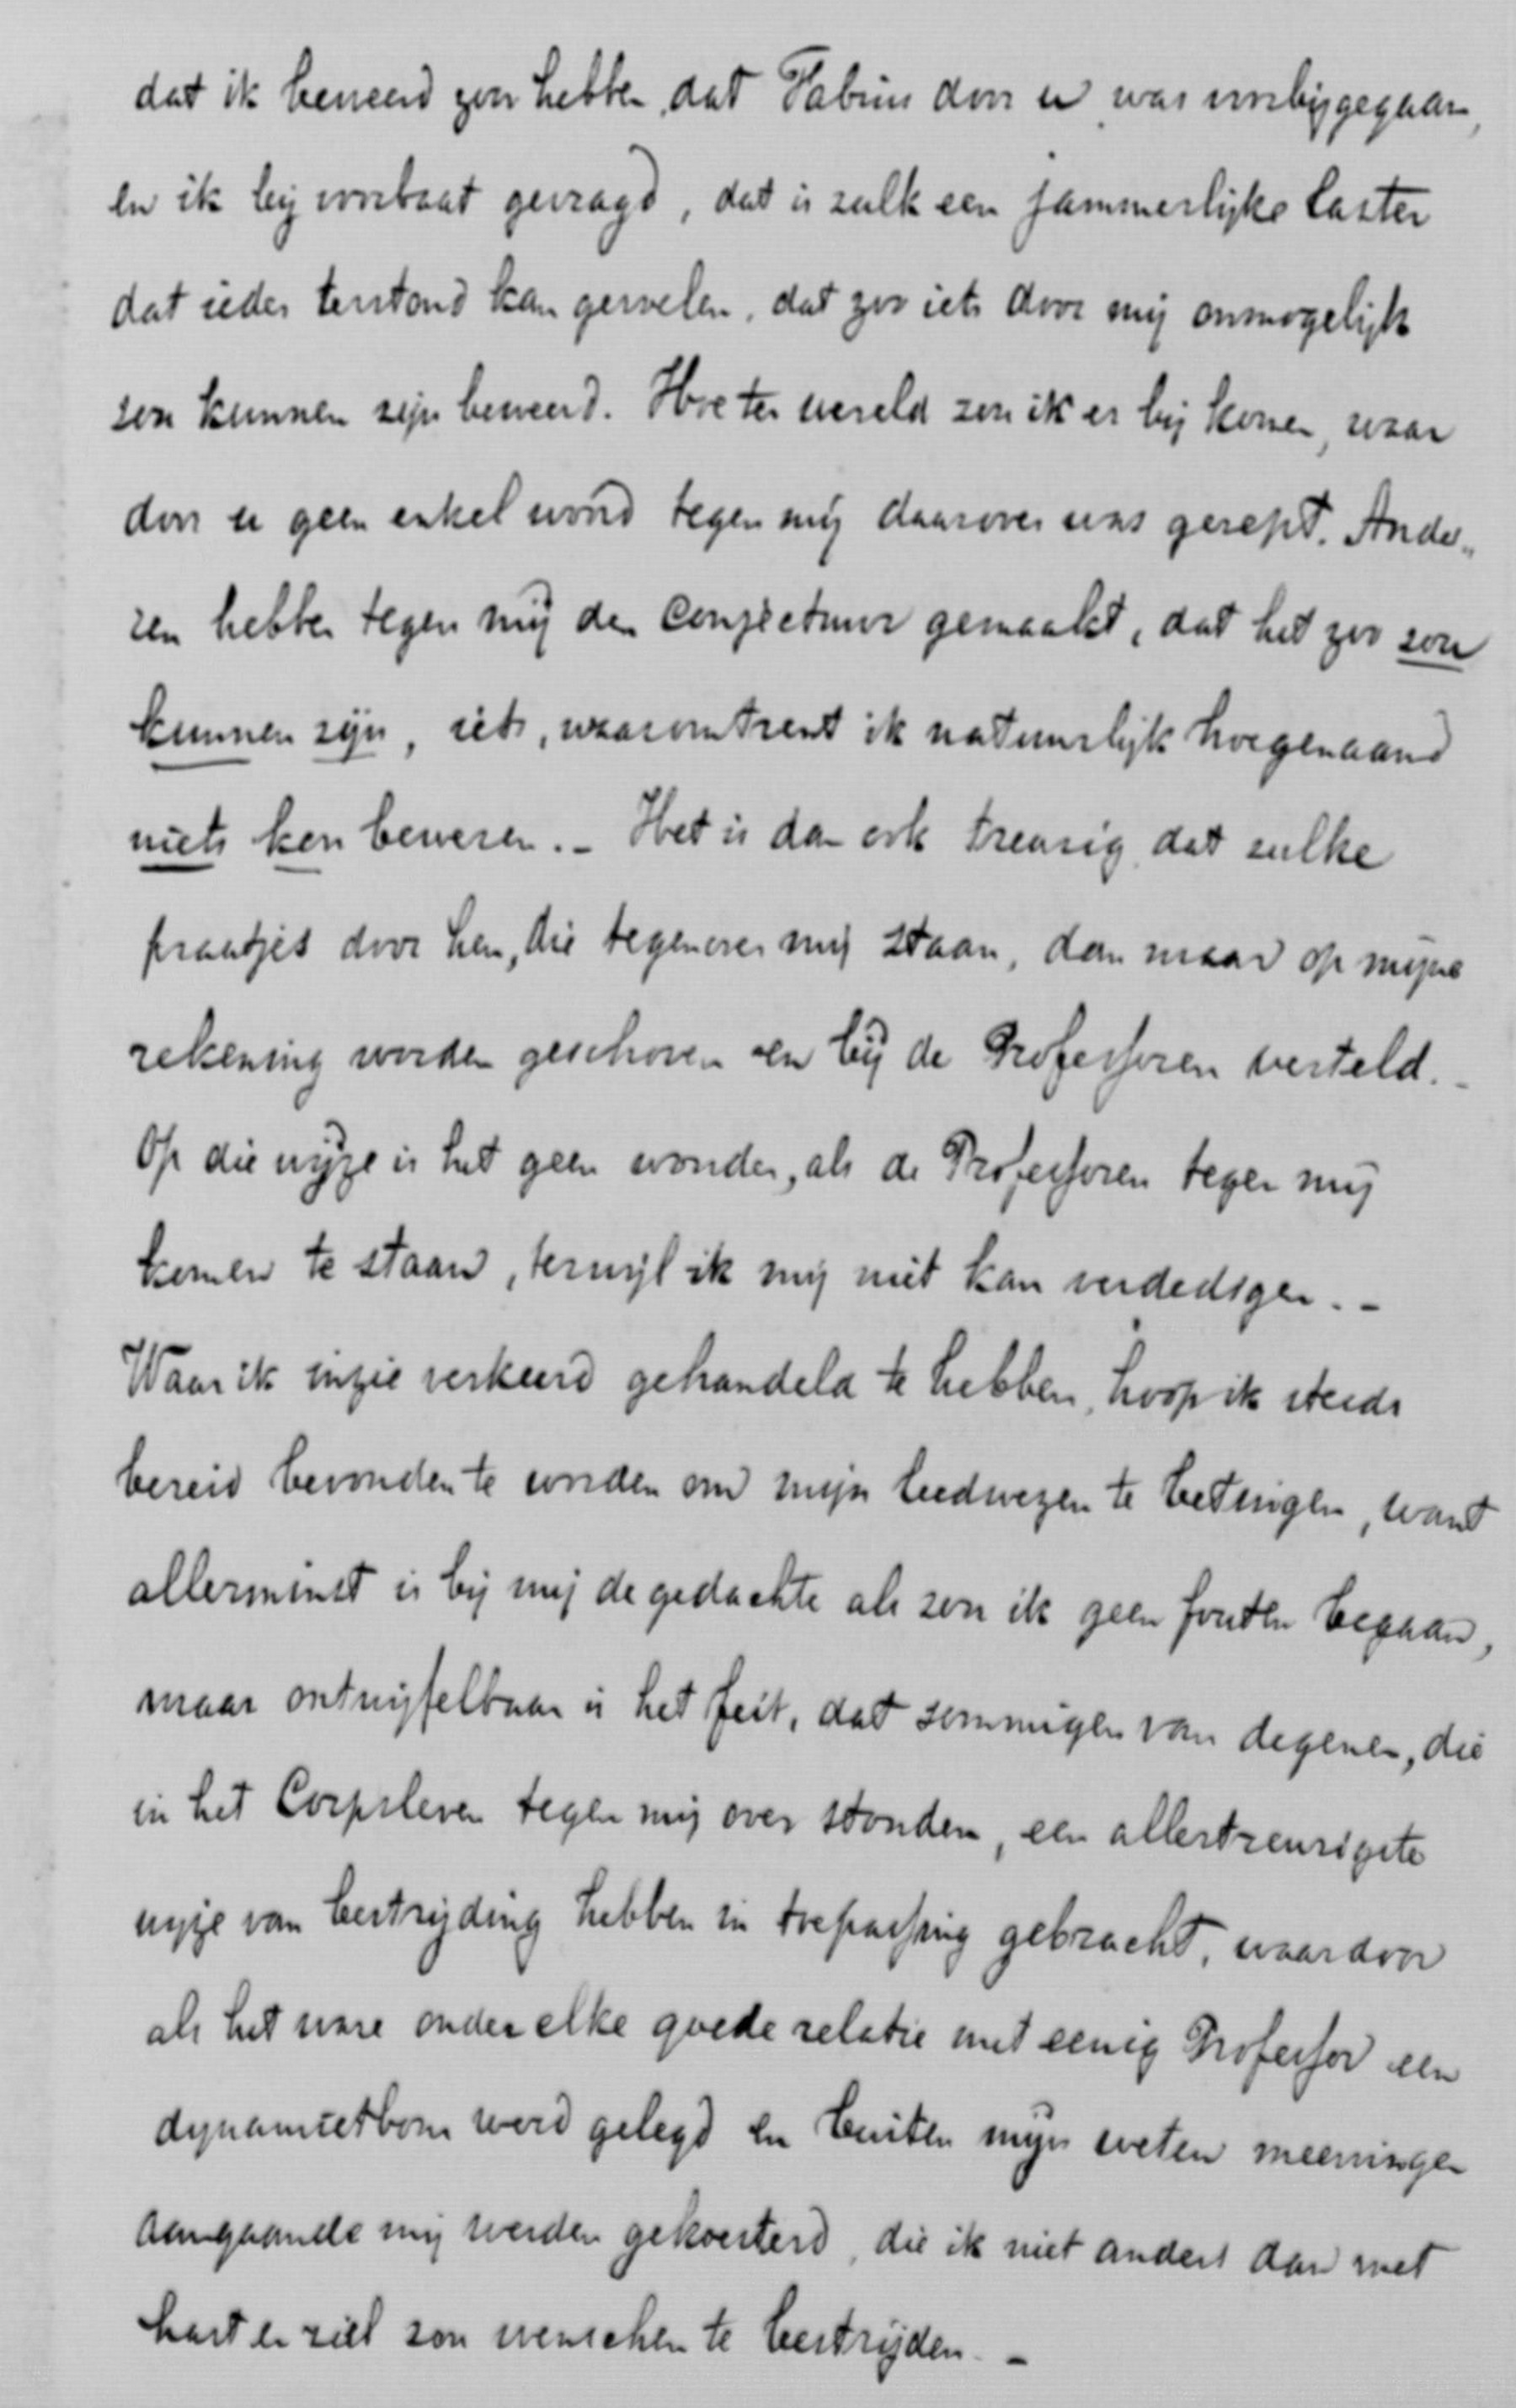 dat ik beweerd zou hebben, dat Fabius door u was voorbijgegaan,
en ik bij voorbaat gevraagd, dat is zulk een jammerlijke laster
dat ieder terstond kan gevoelen, dat zoo iets door mij onmogelijk
zou kunnen zijn beweerd. Hoe ter wereld zou ik er bij komen, waar
door u geen enkel woord tegen mij daarover was gerept. Ande„
ren hebben tegen mij den conjectuur gemaakt, dat het zoo zou
kunnen zijn, iets, waaromtrent ik natuurlijk hoegenaamd
niets kon beweren. – Het is dan ook treurig, dat zulke
praatjes door hen, die tegenover mij staan, dan maar op mijne
rekening worden geschoven en bij de Professoren verteld. –
Op die wijze is het geen wonder, als de Professoren tegen mij
komen te staan, terwijl ik mij niet kan verdedigen. –
Waar ik inzie verkeerd gehandeld te hebben, hoop ik steeds
bereid bevonden te worden om mijn leedwezen te betuigen, want
allerminst is bij mij de gedachte als zou ik geen fouten begaan,
maar ontwijfelbaar is het feit, dat sommigen van degenen, die
in het Corpsleven tegen mij over stonden, een allertreurigste
wijze van bestrijding hebben in toepassing gebracht, waardoor
als het ware onder elke goede relatie met eenig Professor een
dynamietbom werd gelegd en buiten mijn weten meeningen
aangaande mij werden gekoesterd, die ik niet anders dan met
hart en ziel zou wenschen te bestrijden. –